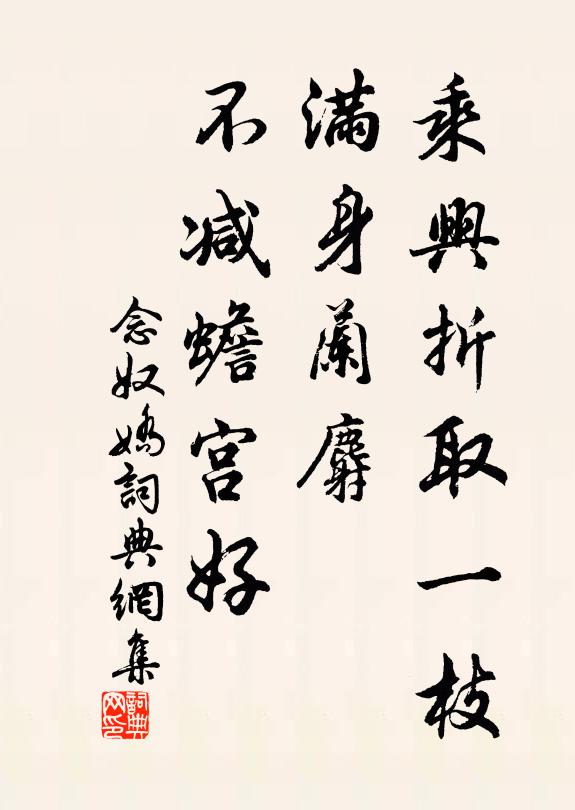 乘興折取一枝
滿身蘭麝
不减蟾宫好
念奴嬌詞典網集
詞典网印